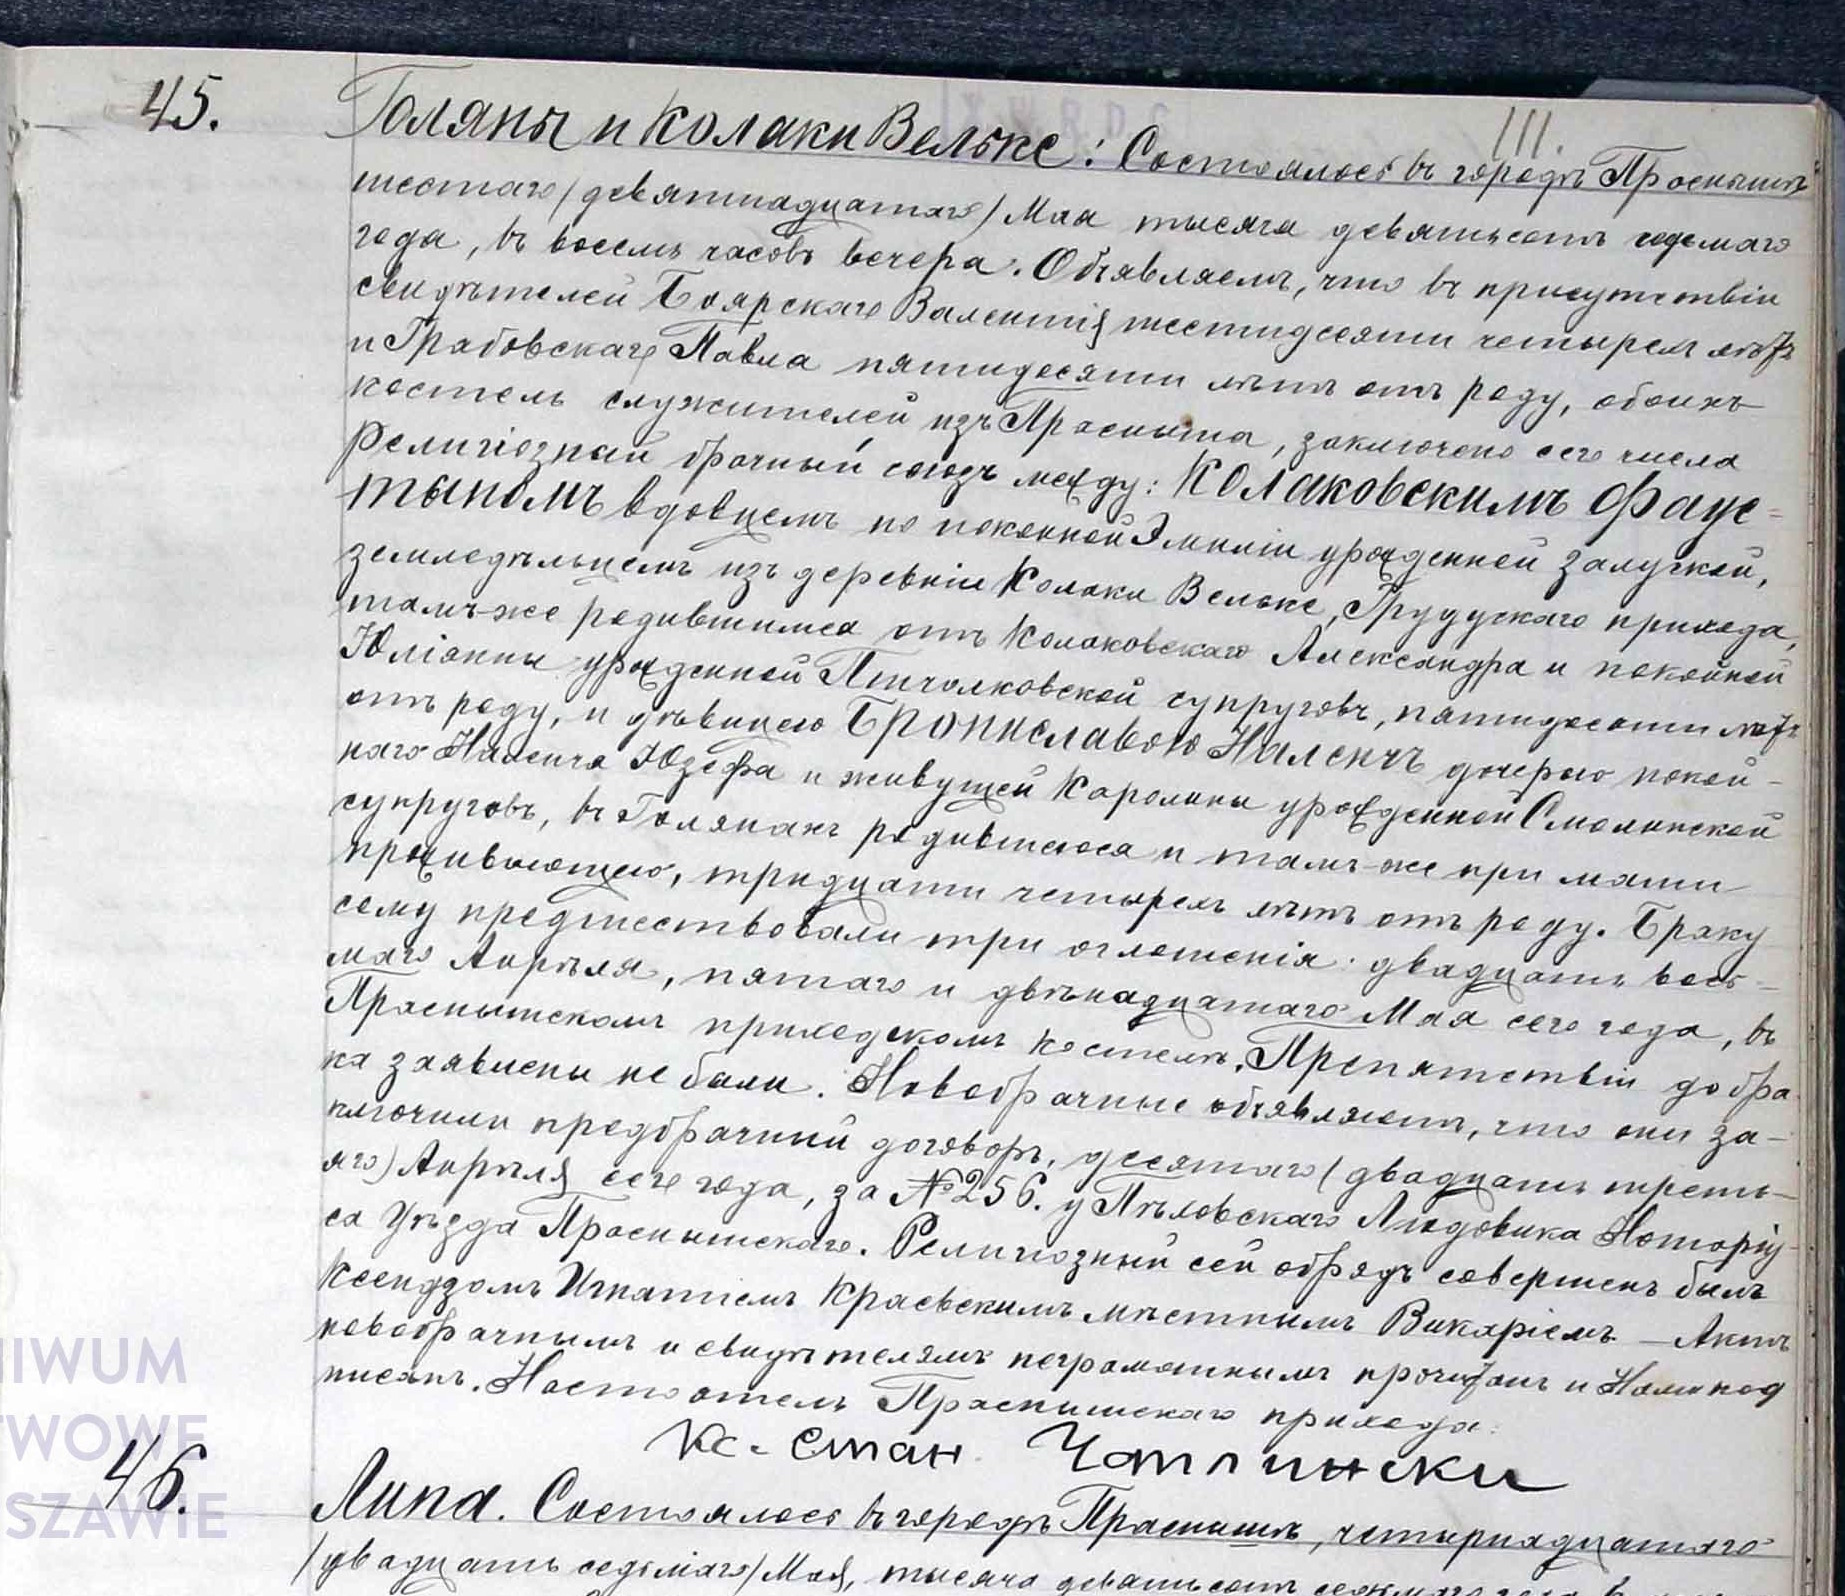 45. Голяны и Колаки Вельке: Состоялось въ городѣ Праснышѣ
111.
шестаго /девятнадцатаго/ Мая тысяча девятьсотъ седьмаго
года, въ восемь часовъ вечера. Объявляемъ, что въ присутствіи
свидѣтелей Боярскаго Валентія шестидесяти четырехъ лѣтъ
и Грабовскаго Павла пятидесяти лѣтъ отъ роду, обоихъ
костель служителей изъ Прасныша, заключенъ сего числа
Религіозный брачный союзъ между: Колаковскимъ Фаус-
тыномъ вдовцемъ по покойной Эмиліи урожденной Залуской,
земледѣльцемъ изъ деревни Колаки Вельке, Грудускаго прихода,
тамъ-же родившимся отъ Колаковскаго Александра и покойной
Юліанны урожденной Пшчолковской супруговъ, пятидесяти лѣтъ
отъ роду, и дѣвицею Брониславою Наленчъ дочерью покой-
наго Наленча Юзефа и живущей Каролины урожденной Смолинской
супруговъ, въ Голянахъ родившеюся и тамъ-же при мати
проживающею, тридцати четырехъ лѣтъ отъ роду. Браку
сему предшествовали три оглашенія: двадцать вось-
маго Апрѣля, пятаго и двѣнадцатаго Мая сего года, въ
Праснышскомъ приходскомъ костелѣ. Препятствій до бра
ка заявлены не были. Новобрачные объявляютъ, что они за-
ключили предбрачный договоръ, десятаго /двадцать треть-
яго/ Апрѣля сего года, за № 256. у Пѣловскаго Людовика Нотаріу-
са Уѣзда Праснышскаго. Религіозный сей обрядъ совершенъ былъ
Ксендзомъ Игнатіемъ Краевскимъ мѣстнымъ Викаріемъ — Актъ
новобрачнымъ и свидѣтелямъ неграмотнымъ прочитанъ и Нами под
писанъ. Настоятель Праснышскаго прихода:
Кс. Стан. Чаплински
46. Липа. Состоялось въ городѣ Праснышѣ, четырнадцатаго
/двадцать седьмаго/ Мая, тысяча девятьсотъ седьмаго года
IWUM
TWOWE
SZAWIE